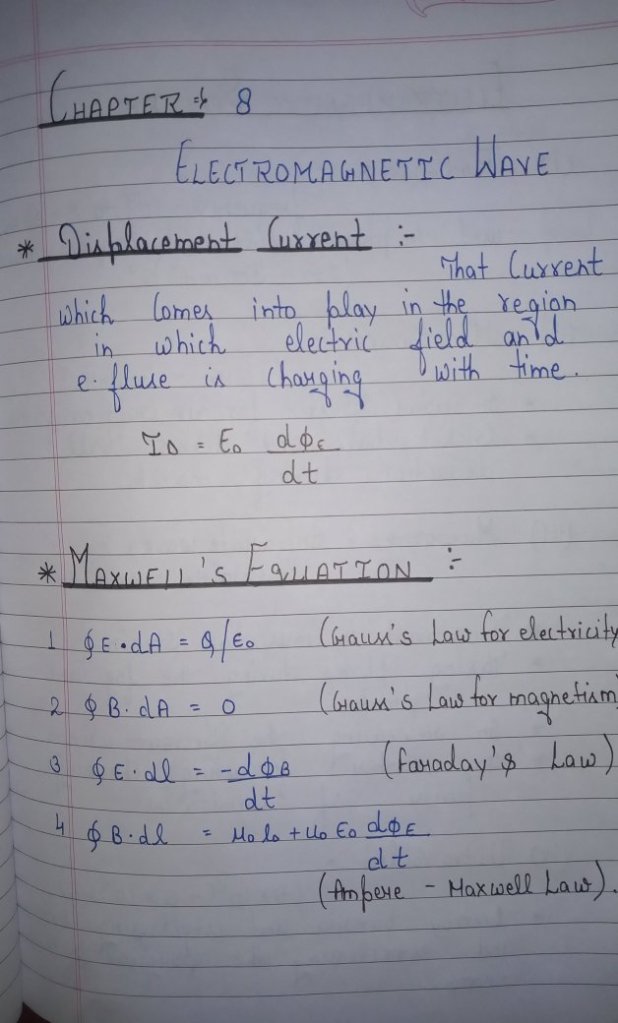 CHAPTER ⇒ 8
ELECTROMAGNETIC WAVE
* Displacement Current :-
That Current
which Comes into play in the region
in which electric field and
e. fluse is Changing with time.
ID = E0 dϕE/dt
* MAXWELL'S EQUATION :-
1 ∮E·dA = Q/E0 (Gauss's Law for electricity
2 ∮B·dA = 0 (Gauss's Law for magnetism)
3 ∮E·dl = -dϕB/dt (Faraday's Law)
4 ∮B·dl = μ0 I0 + μ0 E0 dϕE/dt
(Ampere - Maxwell Law).